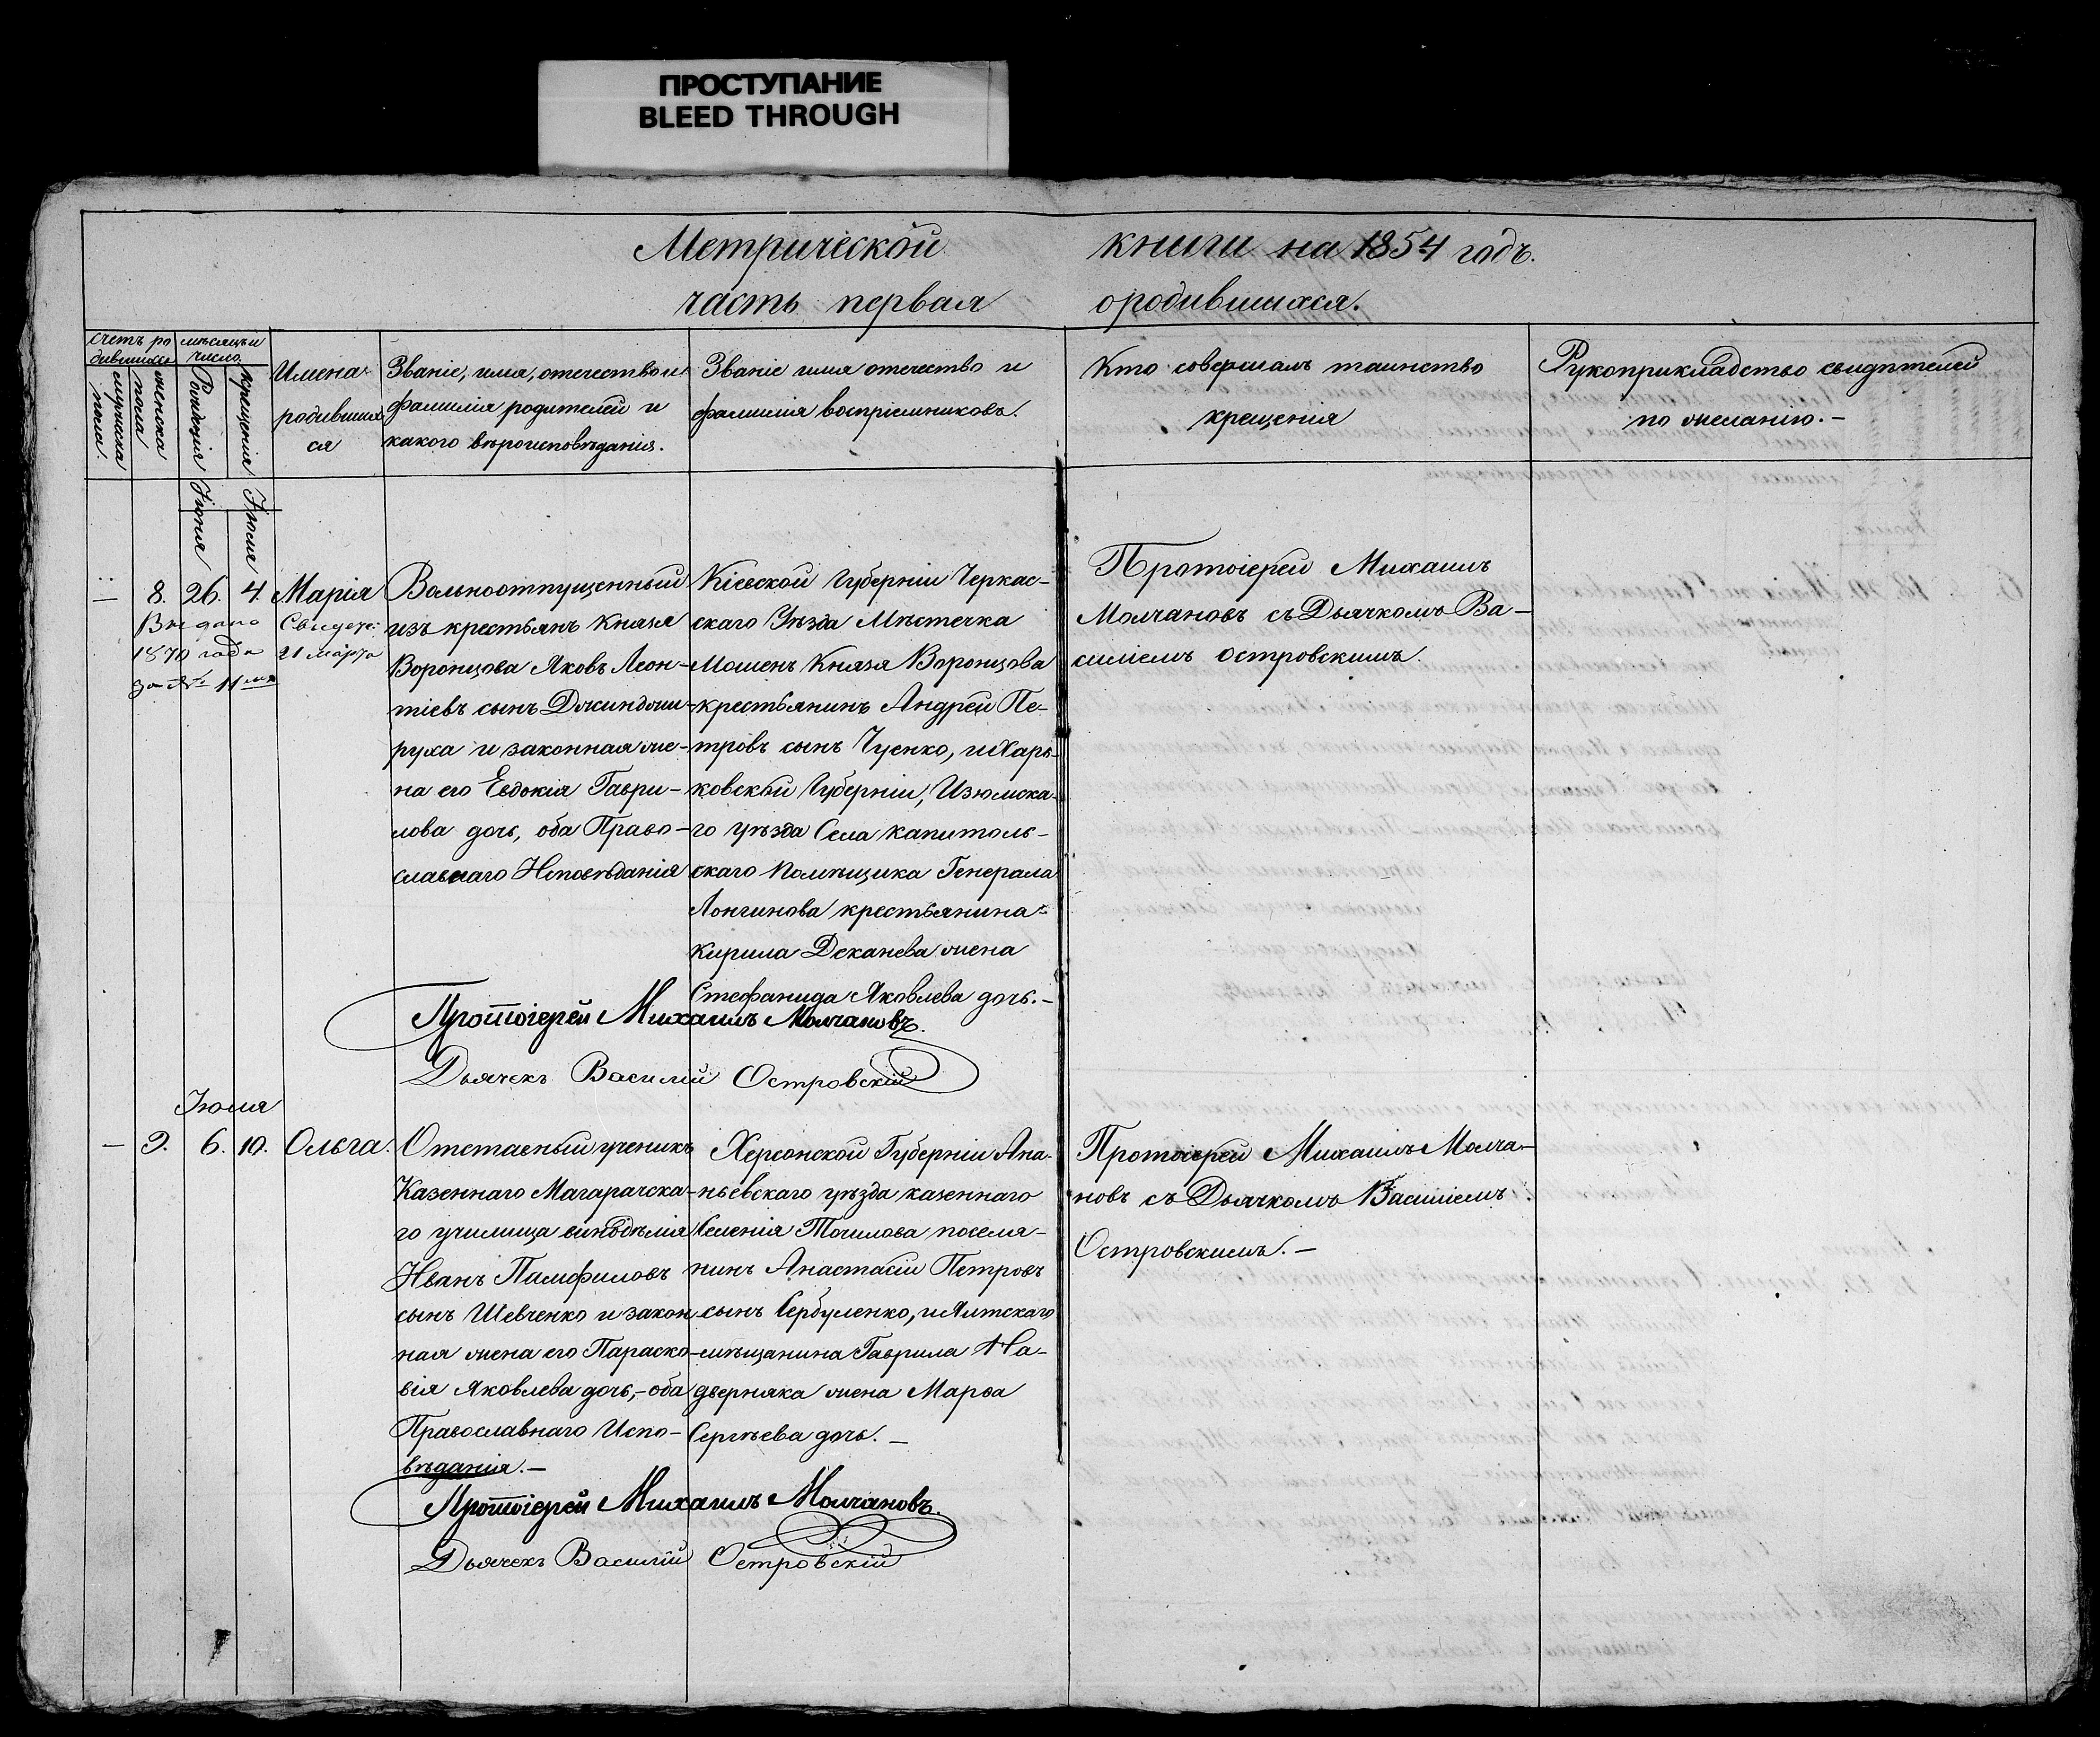 ПРОСТУПАНИЕ
BLEED THROUGH
Метрической книги на 1854 годъ.
часть первая ородившихся.
Счетъ ро
дившихся
мужеска
пола.
женска
пола
мѣсяцъ и
число.
Рождения
крещенія
Имена
родивших
ся
Званіе, имя, отечество и
фамилія родителей и
какого вѣроисповѣданія.
Званіе имя отечество и
фамилія воспріемниковъ.
Кто совершалъ таинство
крещенія
Рукоприкладство свидѣтелей
по желанію. –
Іюня
Іюля
— 8. 26. 4. Марія
Выдано Свидѣте:
1870 года 21 марта
за № 11
Вольноотпущенный
изъ крестьянъ Князя
Воронцова Яковъ Леон-
тіевъ сынъ Джинджи-
руха и законная же-
на его Евдокія Гаври-
лова дочь, оба Право-
славнаго Исповѣданія
Кіевской Губерніи Черкас-
скаго Уѣзда Мѣстечка
Мошенъ Князя Воронцова
крестьянинъ Андрей Пе-
тровъ сынъ Чуенко, и Харь-
ковской Губерніи, Изюмска-
го уѣзда Села Капитоль-
скаго Помѣщика Генерала
Лонгинова крестьянина
Кирила Деканева жена
Стефанида Яковлева дочь. –
Протоіерей Михаилъ
Молчановъ съ Дьячкомъ Ва-
силіемъ Островскимъ.
Протоіерей Михаилъ Молчановъ.
Дьячекъ Василій Островскій
Іюля
— 9. 6. 10. Ольга.
Отставный ученикъ
Казеннаго Магарачска-
го училища винодѣлія
Иванъ Памфиловъ
сынъ Шевченко и закон
ная жена его Параско-
вія Яковлева дочь, – оба
Православнаго Испо-
вѣданія. –
Херсонской Губерніи Ана-
ньевскаго уѣзда казеннаго
Селенія Точилова поселя-
нинъ Анастасій Петровъ
сынъ Сербуленко, и Ялтскаго
мѣщанина Гаврила На-
дверняка жена Марѳа
Сергѣева дочь. –
Протоіерей Михаилъ Молча-
новъ съ Дьячкомъ Василіемъ
Островскимъ. –
Протоіерей Михаилъ Молчановъ.
Дьячекъ Василій Островскій